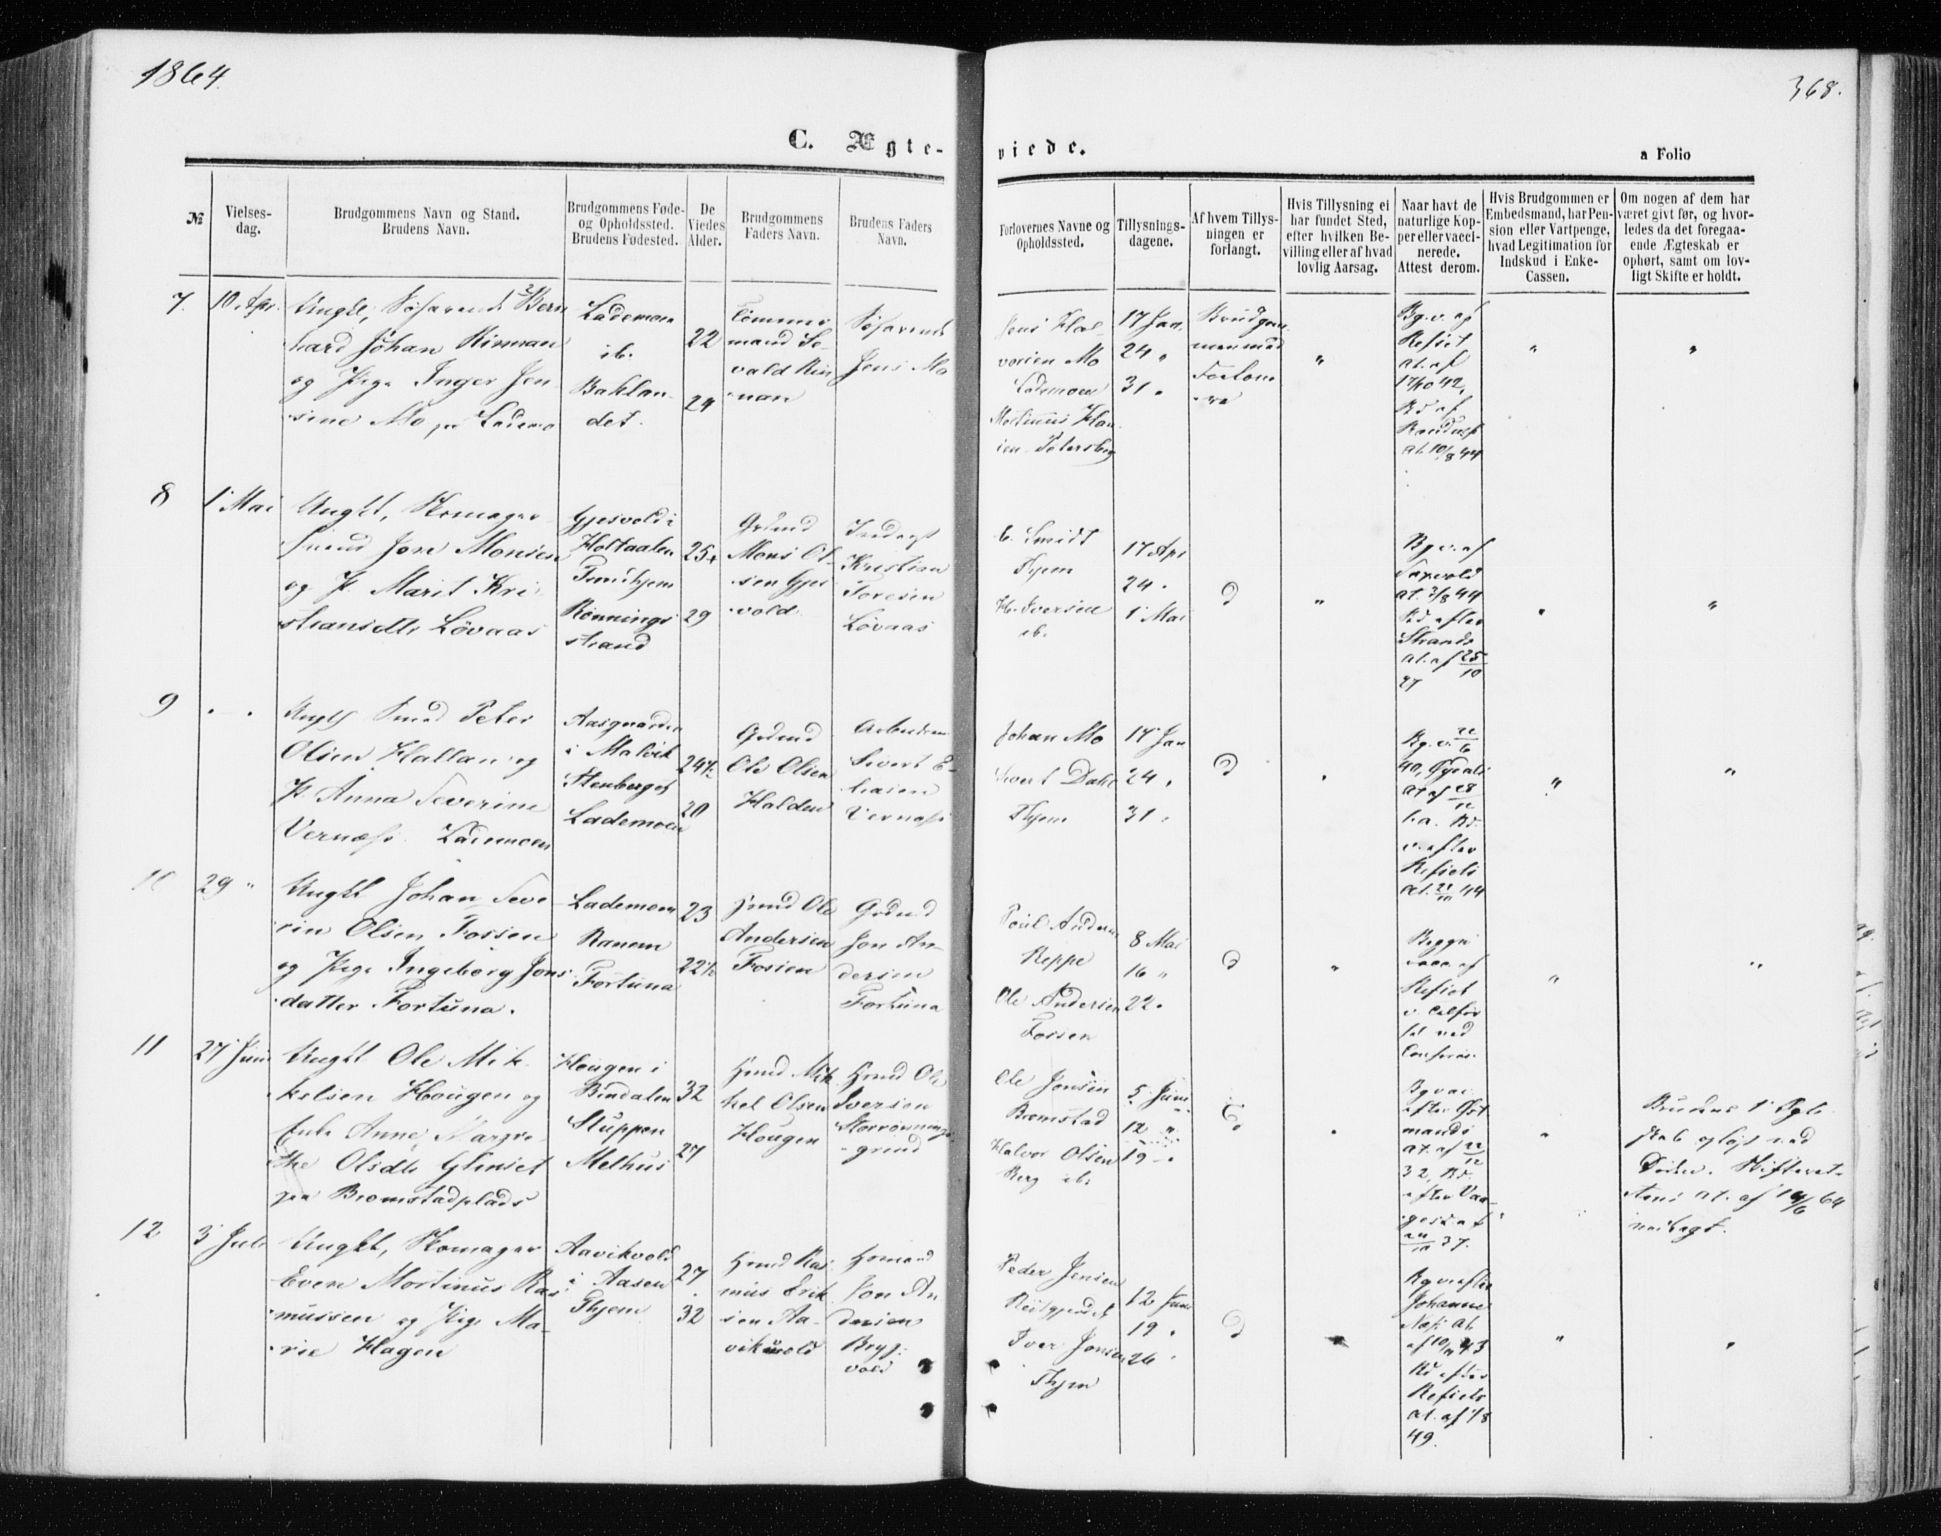 1864.
368.
C. Ægte-
viede.
a Folio
№
Vielses-
dag.
Brudgommens Navn og Stand.
Brudens Navn.
Brudgommens Føde-
og Opholdssted.
Brudens Fødested.
De
Viedes
Alder.
Brudgommens
Faders Navn.
Brudens Faders
Navn.
Forlovernes Navne og
Opholdssted.
Tillysnings-
dagene.
Af hvem Tillys-
ningen er
forlangt.
Hvis Tillysning ei
har fundet Sted,
efter hvilken Be-
villing eller af hvad
lovlig Aarsag.
Naar havt de
naturlige Kop-
per eller vacci-
nerede.
Attest derom.
Hvis Brudgommen er
Embedsmand, har Pen-
sion eller Vartpenge,
hvad Legitimation for
Indskud i Enke-
Cassen.
Om nogen af dem har
været givt før, og hvor-
ledes da det foregaa-
ende Ægteskab er
ophørt, samt om lov-
ligt Skifte er holdt.
7.
10. Apr.
Ungkl, Søfarende Bern
hard Johan Rinnan
og Pige Inger Jen
sine Mo, pa Lademo
Lademoen
ib.
Baklan-
det.
22
24
Tømmer
mand Se-
vald Rin
nan
Søfarende
Jens Mo
Jens Hal-
vorsen Mo
Lademoen
Mortinus Han
sen Petersborg
17 Jan.
24 "
31 "
Brudgom
men med
Forlove
re
"
Bg.v. af
Refset
at. af
17/10 42,
Bd af
at. 10/8 44
"
"
8
1 Mai
Ungkl, Skomager
svend Jon Monsen
og P. Marit Kri
stiansdtr Løvaas
Gjesvold i
Holtaalen
Trondhjem
Rønnings
strand
25
29
Grdmd
Mons Ol-
sen Gjes
vold
Kristian
Toresen
Løvaas
C. Smidt
Thjem
H. Iversen
ib.
17 Apr
24 "
1 Mai
"
Bg. v. af
at. 3/8 44
Bd efter
Strands
at. af 25/10
47
"
"
9
Ungkl Smed Peter
Olsen Hallan og
P. Anna Severine
Vernæss Lademoen
Aasgaarden
i Malvik
Stenberget
Lademoen
24½
20
Grdmd
Ole Olsen
Halden
Arbeidsm
Sivert E-
liasen
Vernæss
Johan Mo
Sivert Dahl
Thjem
17 Jan
24 "
31 "
Bg. v. 22/6
40,
at af 28/12
Bd.
v. efter
Refsets
at. 44
"
"
10
29 "
Ungkl Johan Seve-
rin Olsen Fossen
og Pige Ingeborg Jons
datter Fortuna.
Lademoen
Ranem
Fortuna
23
22½
Ole
Andersen
Fossen
Grdmd
Jon An-
dersen
Fortuna
Poul Anders
Reppe
Ole Andersen
Fossen
8 Mai
16 "
22 "
"
Begge
vacc. af
Refset
"
"
11
27 Juni
Ungkl Ole Mik-
kelsen Hougen og
Enke Anne Margre-
the Olsdtr Glinset
paa Bromstadplads
Hougen i
Bindalen
Stuppen
Melhus
32
27
Hmd Mik
kel Olsen
Hougen
Hmd Ole
Iversen
Storrønnings-
grind
Ole Jonsen
Bromstad
Halvor Olsen
Berg ib.
5 Juni
12 "
19 "
"
Bg vac
efter Øst
mands
at. af 22/12
32, Bd.
efter
37.
"
Brudens 1' Egte-
skab opløst ved
Døden. Skifteret-
tens at. af 14/6 64
12
3 Juli
Ungkl, Skomager
Even Mortinus Ras
mussen og Pige Ma-
rie Hagen
Aavikvold
i Aasen
Thjem
27
32
Hmd Ras
mus Erik
sen Aa-
vikvold
Husmand
Jon An
dersen
vold
Peder Jensen
Iver Jonsen
Thjem
12 Juni
19 "
26 "
Bg v. efter
Johannes
at.
af 10/11 43
Bd efter
Refsets
at. af
49.
"
"